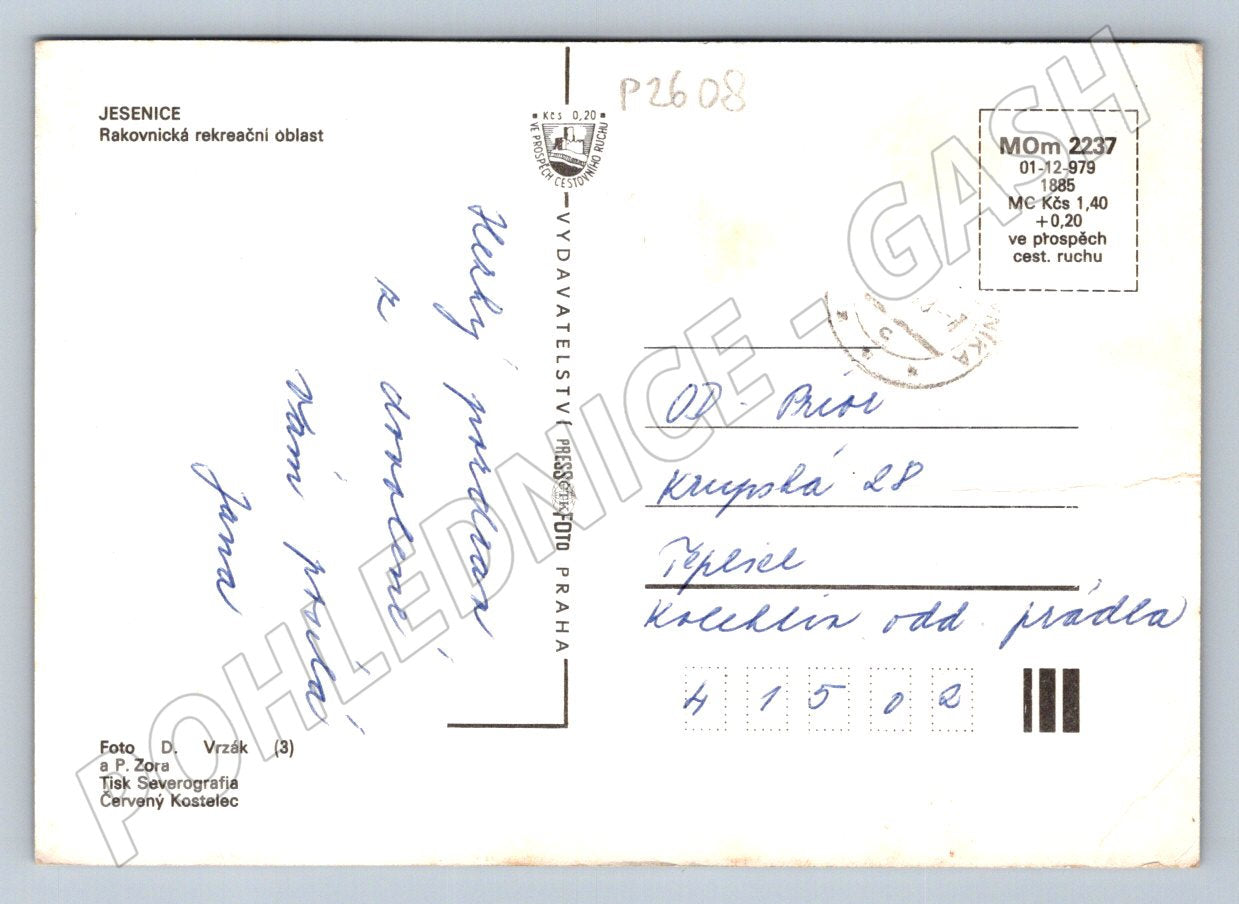 JESENICE
Rakovnická rekreační oblast
P2608
Kčs 0,20
VE PROSPĚCH CESTOVNÍHO RUCHU
MOm 2237
01-12-979
1885
MC Kčs 1,40
+0,20
ve prospěch
cest. ruchu
NÍKA
Hezký pozdrav
z dovolené
Vám posílá
Jana
VYDAVATELSTVÍ PRESSFOTO PRAHA
ČTK
OD - Prior
Krupská 28
Teplice
Kolektiv odd. prádla
41502
Foto D. Vrzák (3)
a P. Zora
Tisk Severografia
Červený Kostelec
POHLEDNICE - GASH